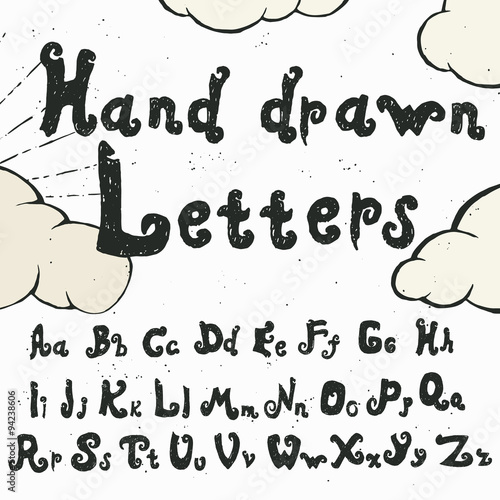 Hand drawn
Letters
Aa Bb Cc Dd Ee Ff Gg Hh
Ii Jj Kk Ll Mm Nn Oo Pp Qq
Rr Ss Tt Uu Vv Ww Xx Yy Zz
Adobe Stock | #94238606